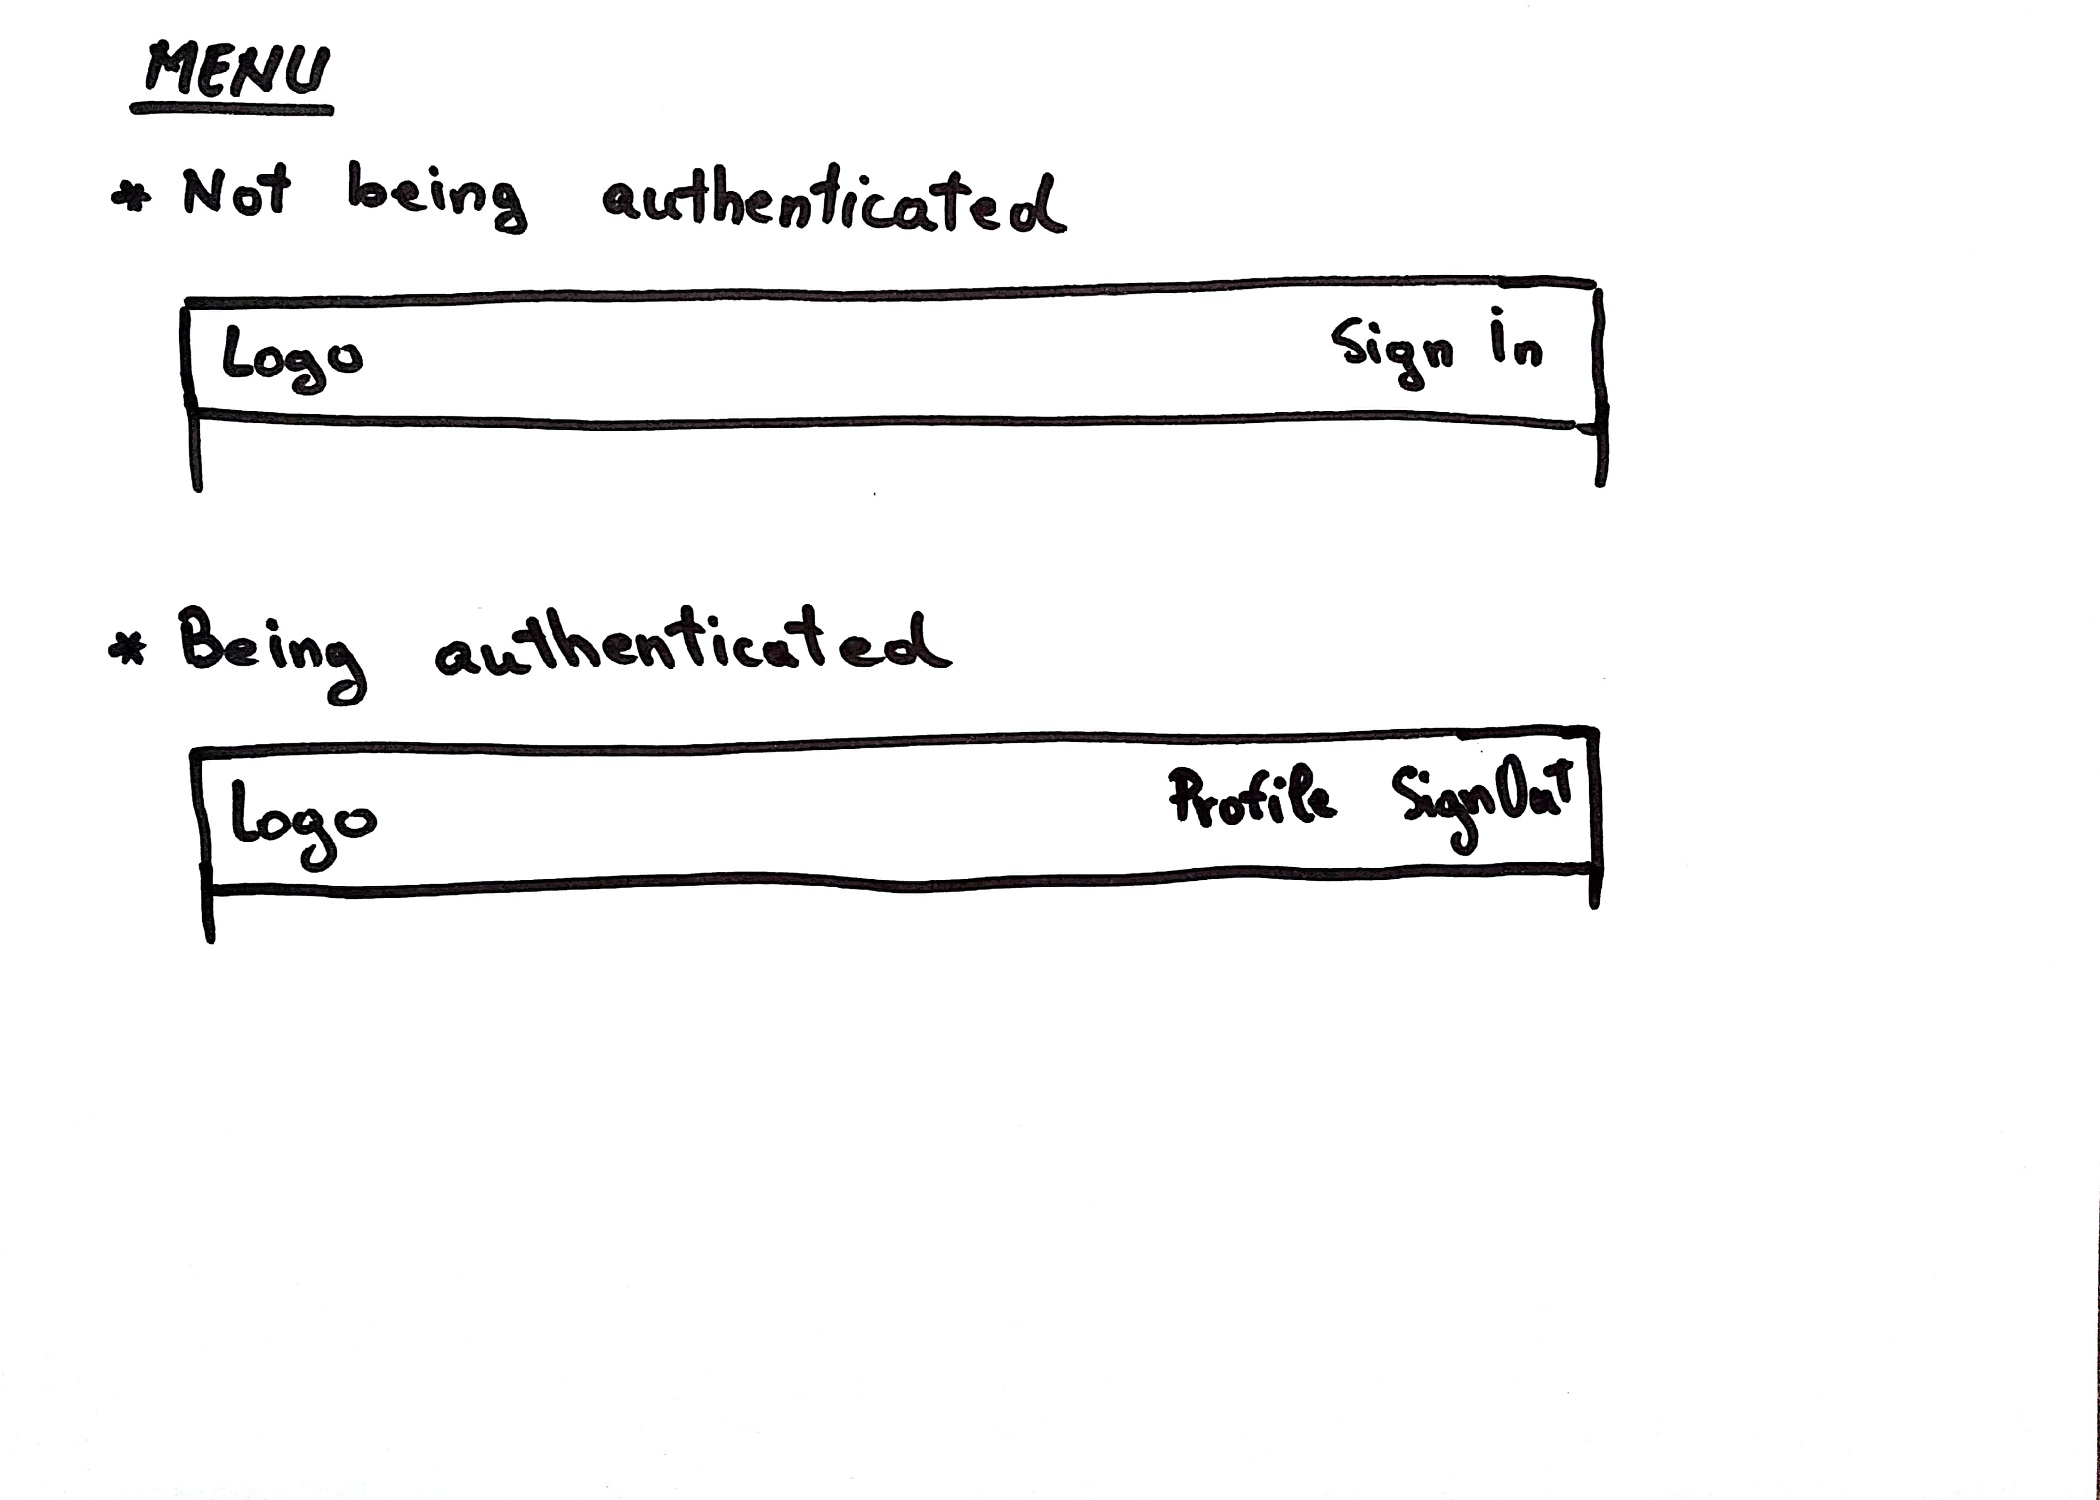 MENU
* Not being authenticated
Logo Sign in
* Being authenticated
Logo Profile SignOut